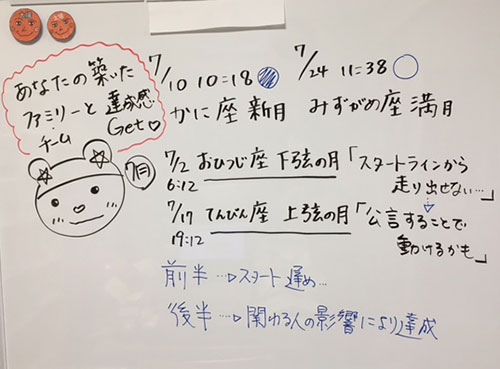 あなたの築いた
ファミリーと達成感
チーム Get♡
7/10 10:18
かに座 新月
7/24 11:38
みずがめ座 満月
7月
7/2 おひつじ座 下弦の月「スタートラインから
6:12 走り出せない…」
7/17 てんびん座 上弦の月「公言することで
19:12 動けるかも」
前半…▷スタート遅め…
後半…▷関わる人の影響により達成